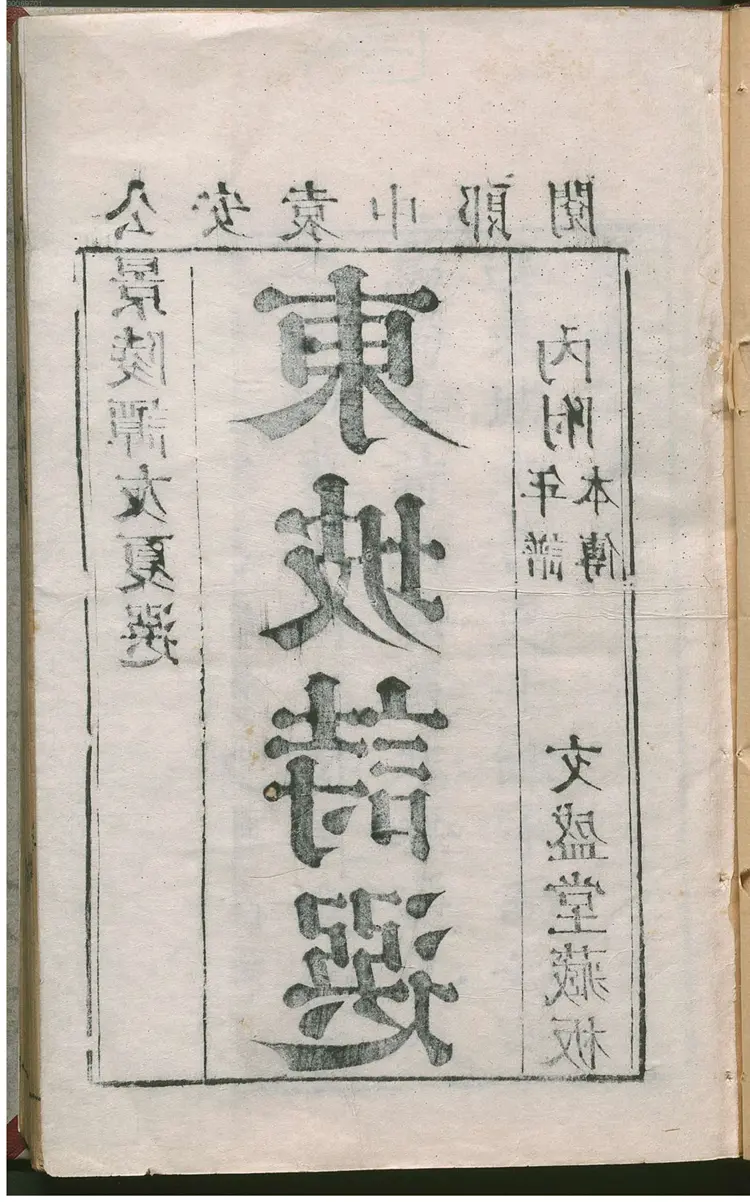 公安袁中郎閱
景陵譚友夏選
東坡詩選
內附
年譜
本傳
文盛堂藏板